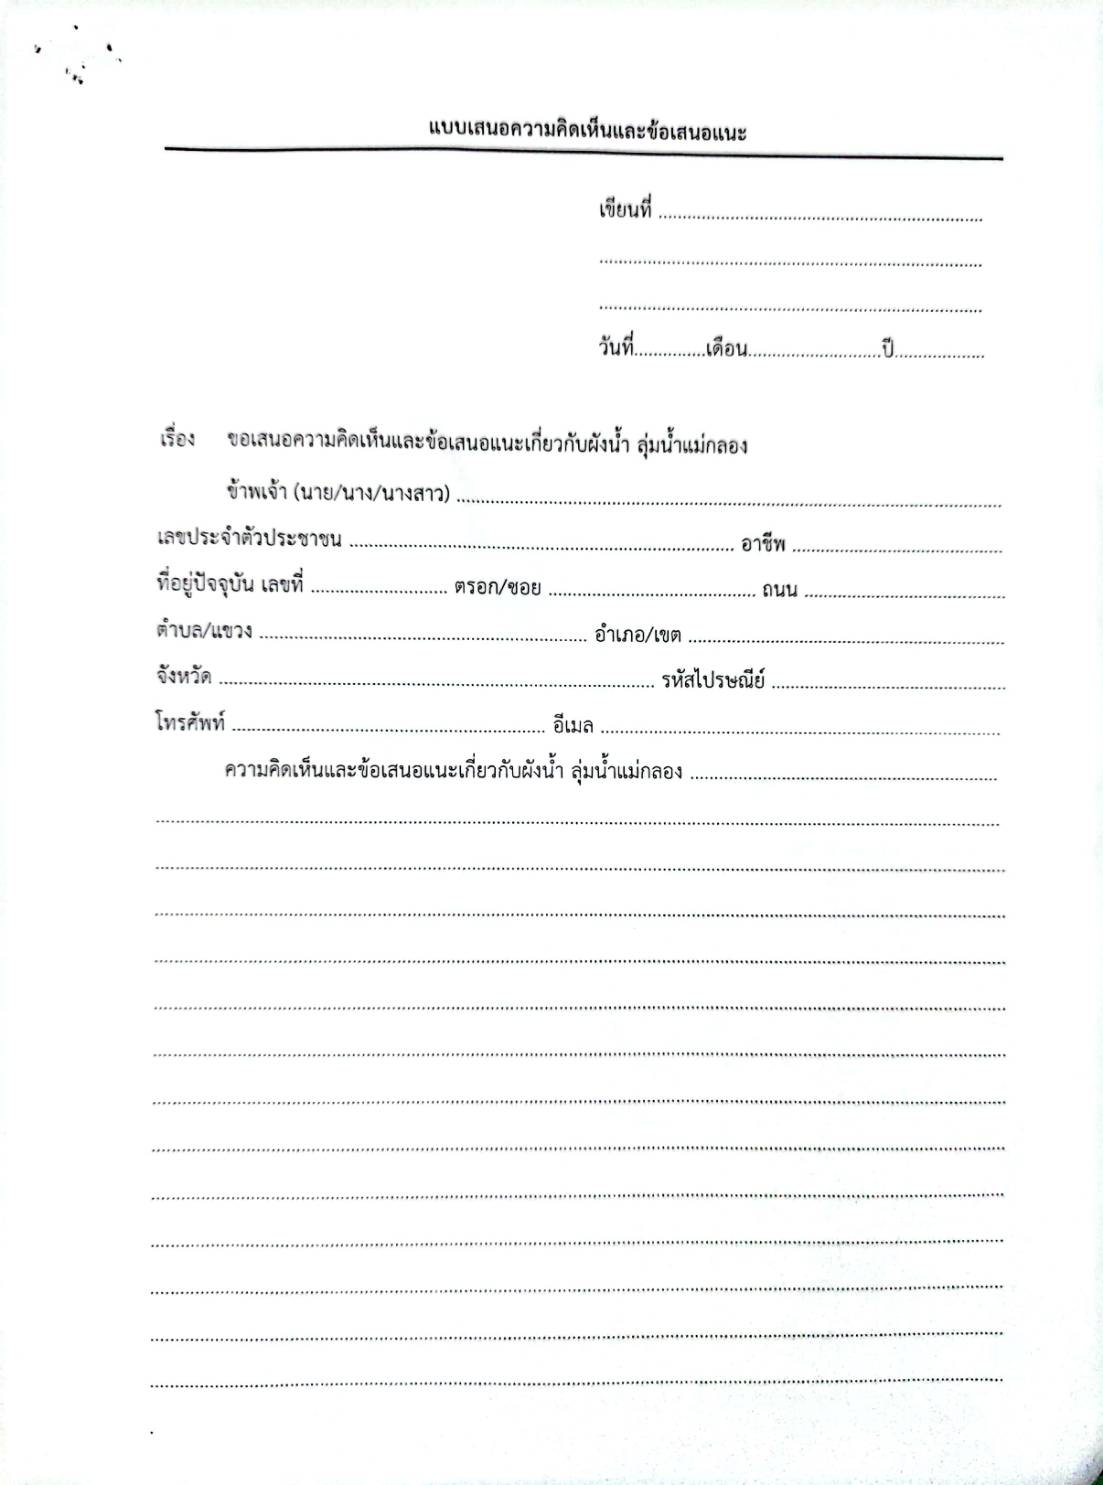 แบบเสนอความคิดเห็นและข้อเสนอแนะ
เขียนที่ ....................................................................
................................................................................
................................................................................
วันที่...............เดือน............................ปี...................
เรื่อง ขอเสนอความคิดเห็นและข้อเสนอแนะเกี่ยวกับผังน้ำ ลุ่มน้ำแม่กลอง
ข้าพเจ้า (นาย/นาง/นางสาว) ....................................................................
เลขประจำตัวประชาชน .................................................... อาชีพ ..............................
ที่อยู่ปัจจุบัน เลขที่ ............................ ตรอก/ซอย .......................................... ถนน ..............................
ตำบล/แขวง .................................................... อำเภอ/เขต ....................................................
จังหวัด .................................................... รหัสไปรษณีย์ ..............................
โทรศัพท์ .................................................... อีเมล ....................................................
ความคิดเห็นและข้อเสนอแนะเกี่ยวกับผังน้ำ ลุ่มน้ำแม่กลอง ....................................................